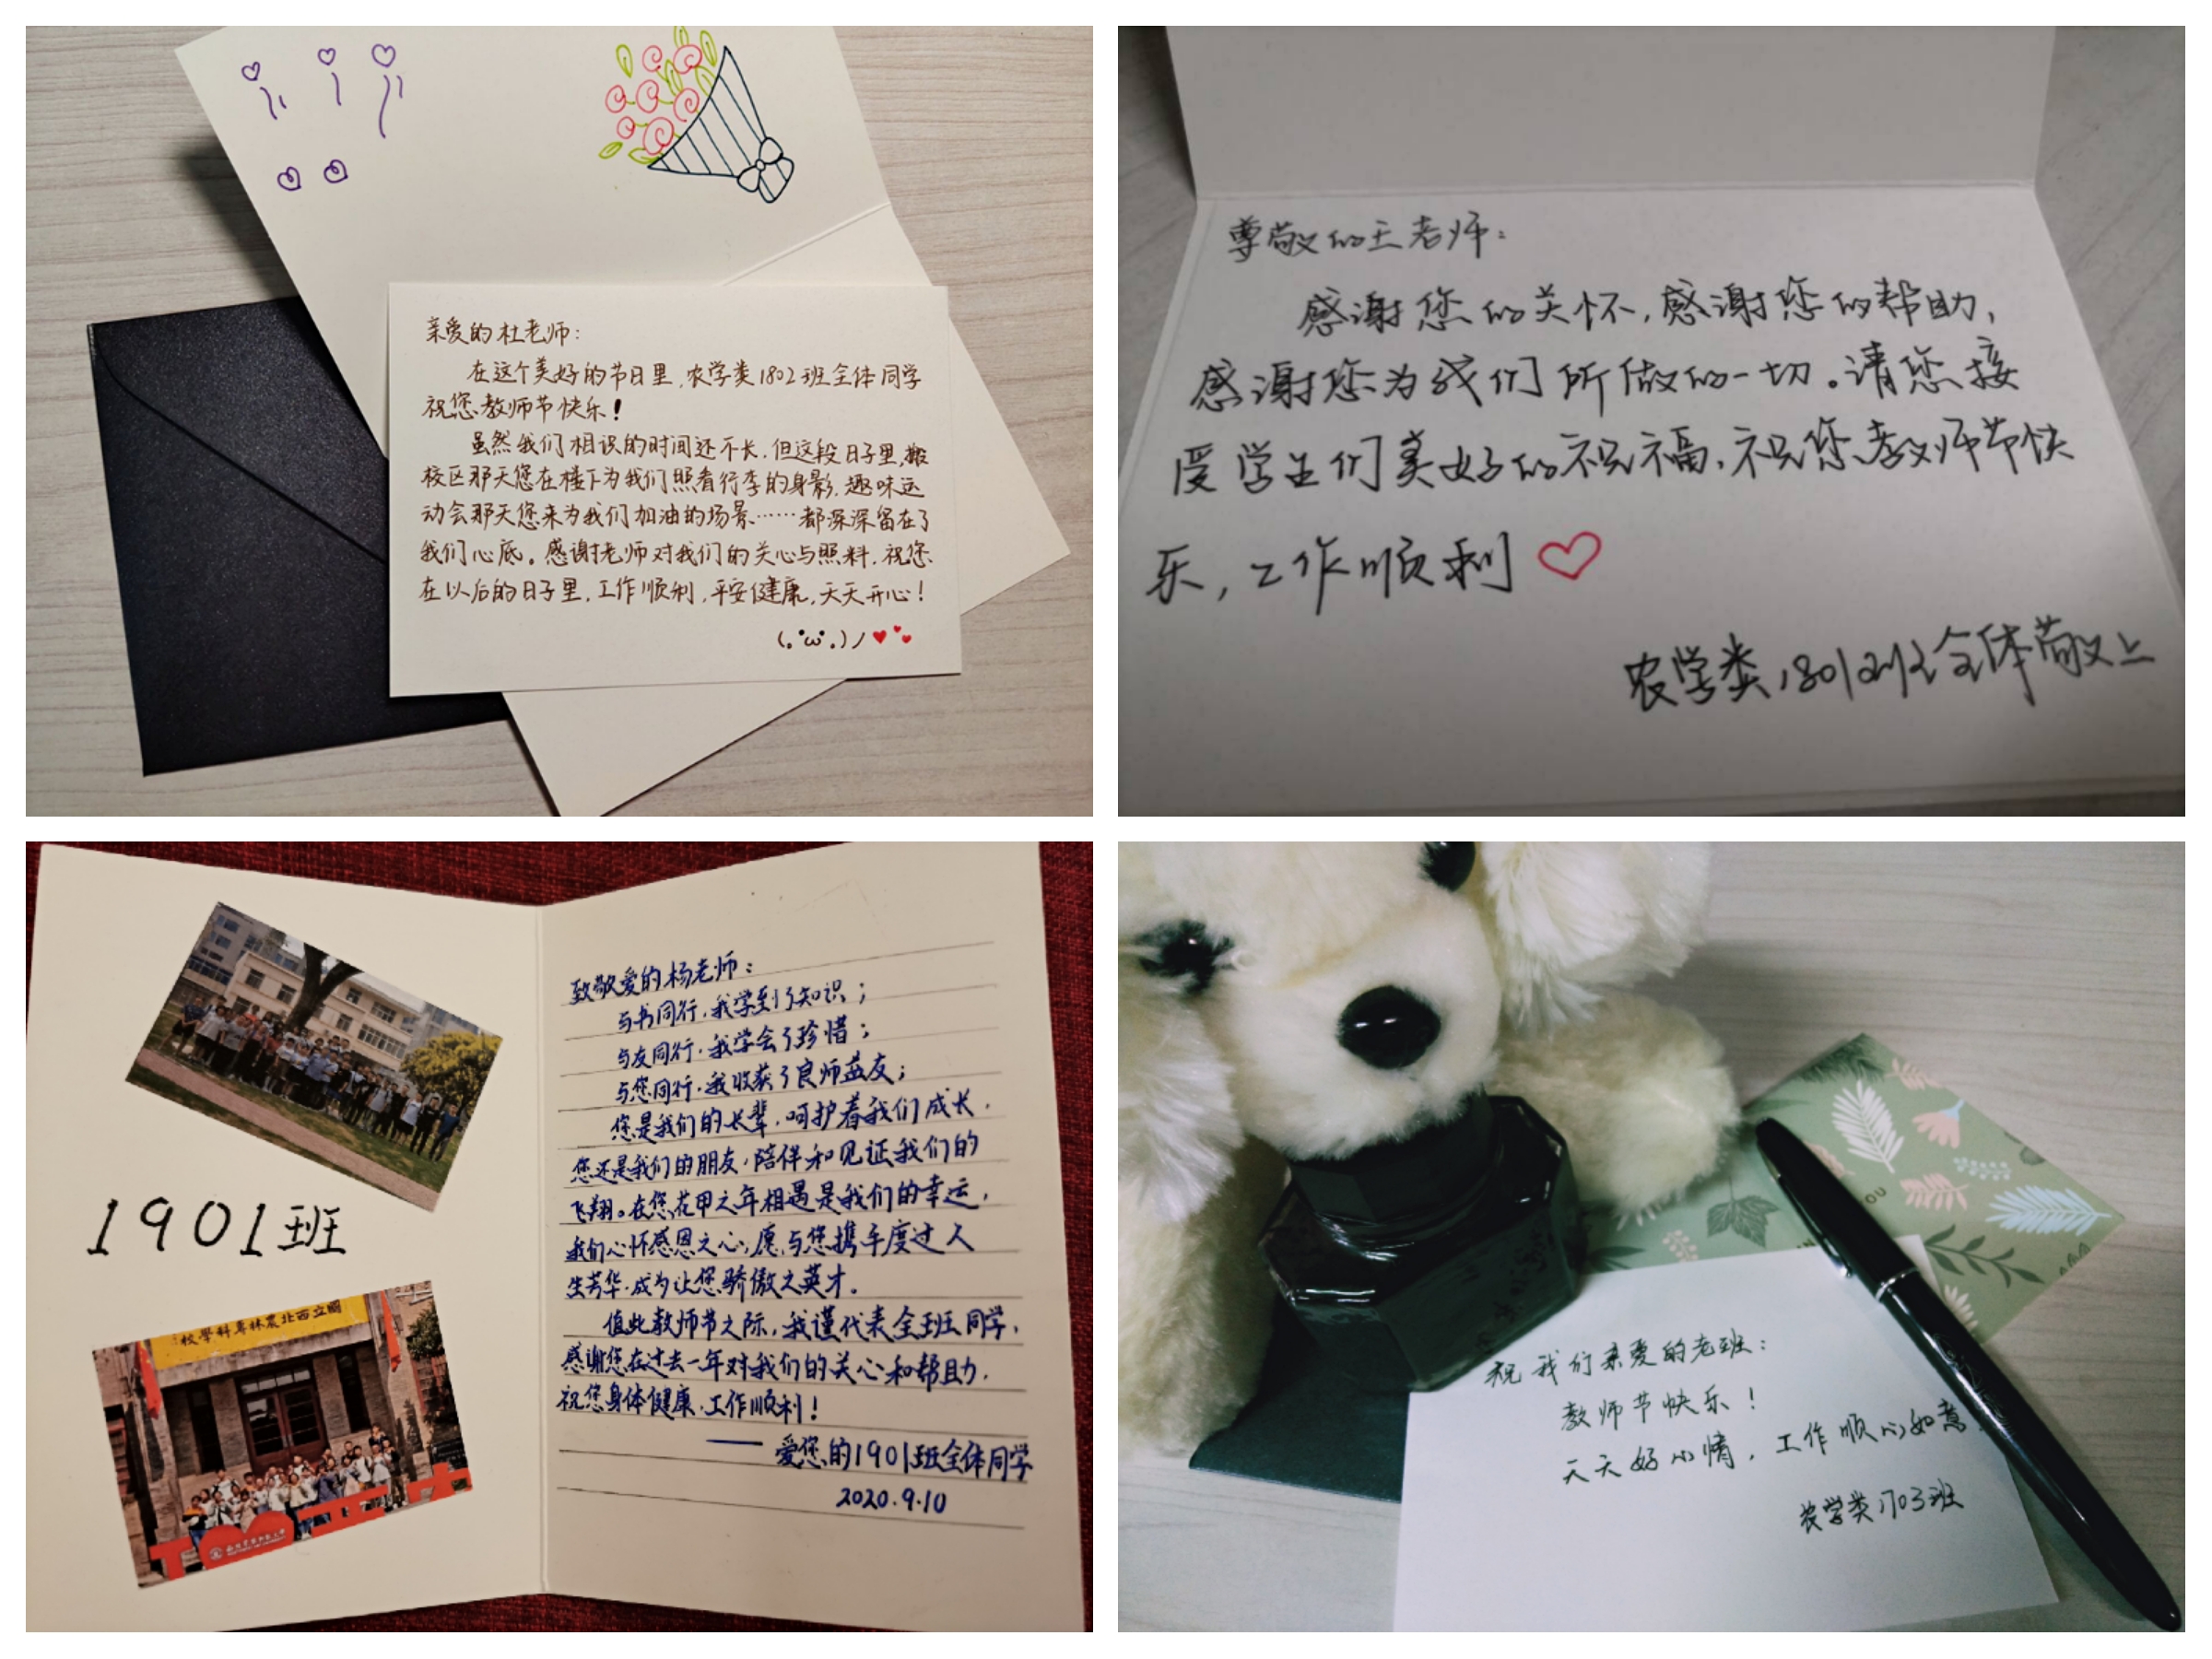 亲爱的杜老师：
在这个美好的节日里，农学类1802班全体同学
祝您教师节快乐！
虽然我们相识的时间还不长，但这段日子里，搬
校区那天您在楼下为我们照看行李的身影，趣味运
动会那天您来为我们加油的场景……都深深留在了
我们心底。感谢老师对我们的关心与照料，祝您
在以后的日子里，工作顺利，平安健康，天天开心！
(.•ω•.)ノ
尊敬的王老师：
感谢您的关怀，感谢您的帮助，
感谢您为我们所做的一切。请您接
受学生们美好的祝福，祝您教师节快
乐，工作顺利
农学类1801班全体敬上
1901班
國立西北農林專科學校
致敬爱的杨老师：
与书同行，我学到了知识；
与友同行，我学会了珍惜；
与您同行，我收获了良师益友；
您是我们的长辈，呵护着我们成长，
您还是我们的朋友，陪伴和见证我们的
飞翔。在您花甲之年相遇是我们的幸运，
我们心怀感恩之心，愿与您携手度过人
生芳华，成为让您骄傲之英才。
值此教师节之际，我谨代表全班同学，
感谢您在过去一年对我们的关心和帮助，
祝您身体健康，工作顺利！
——爱您的1901班全体同学
2020.9.10
祝我们亲爱的老班：
教师节快乐！
天天好心情，工作顺心如意
农学类1703班